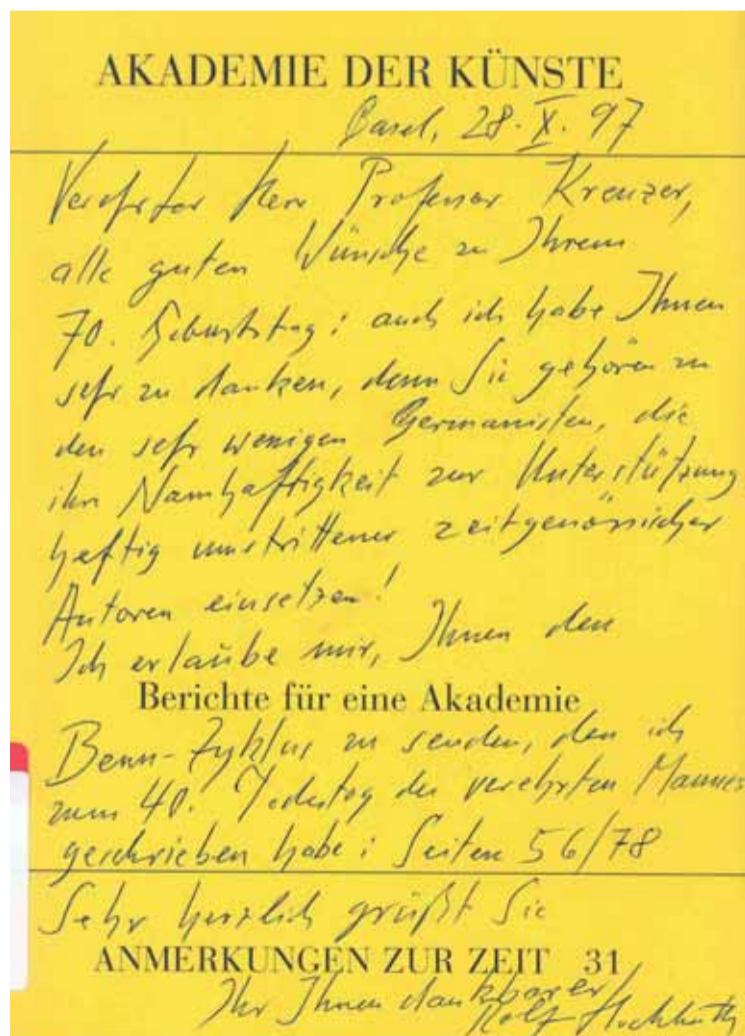 AKADEMIE DER KÜNSTE
Basel, 28. X. 97
Verehrter Herr Professor Kreuzer,
alle guten Wünsche zu Ihrem
70. Geburtstag: auch ich habe Ihnen
sehr zu danken, denn Sie gehören zu
den sehr wenigen Germanisten, die
ihre Namhaftigkeit zur Unterstützung
heftig umstrittener zeitgenössischer
Autoren einsetzen!
Ich erlaube mir, Ihnen den
Berichte für eine Akademie
Benn-Zyklus zu senden, den ich
zum 40. Todestag des verehrten Mannes
geschrieben habe: Seiten 56/78
Sehr herzlich grüßt Sie
ANMERKUNGEN ZUR ZEIT 31
Ihr Ihnen dankbarer
Rolf Hochhuth